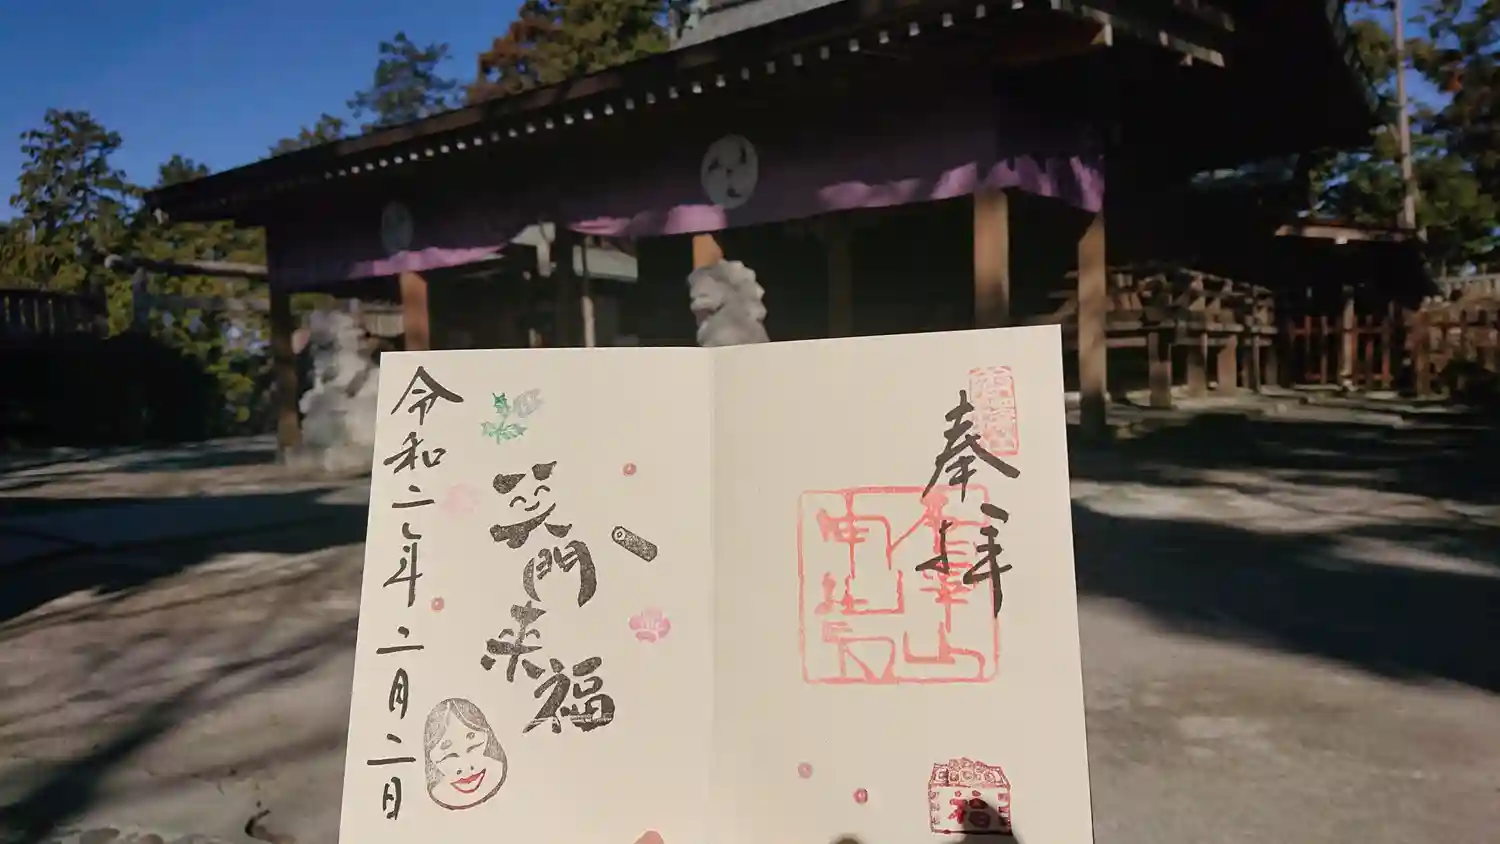 奉拝
福
笑門
来福
令和二年二月二日